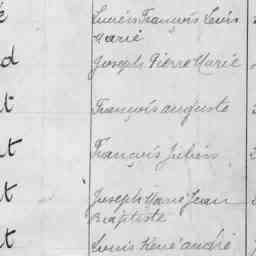 é Lucien François Louis
Marie
d Joseph Pierre Marie
t François auguste
t François Julien
t Joseph Marie Jean
Baptiste
t Louis René andré